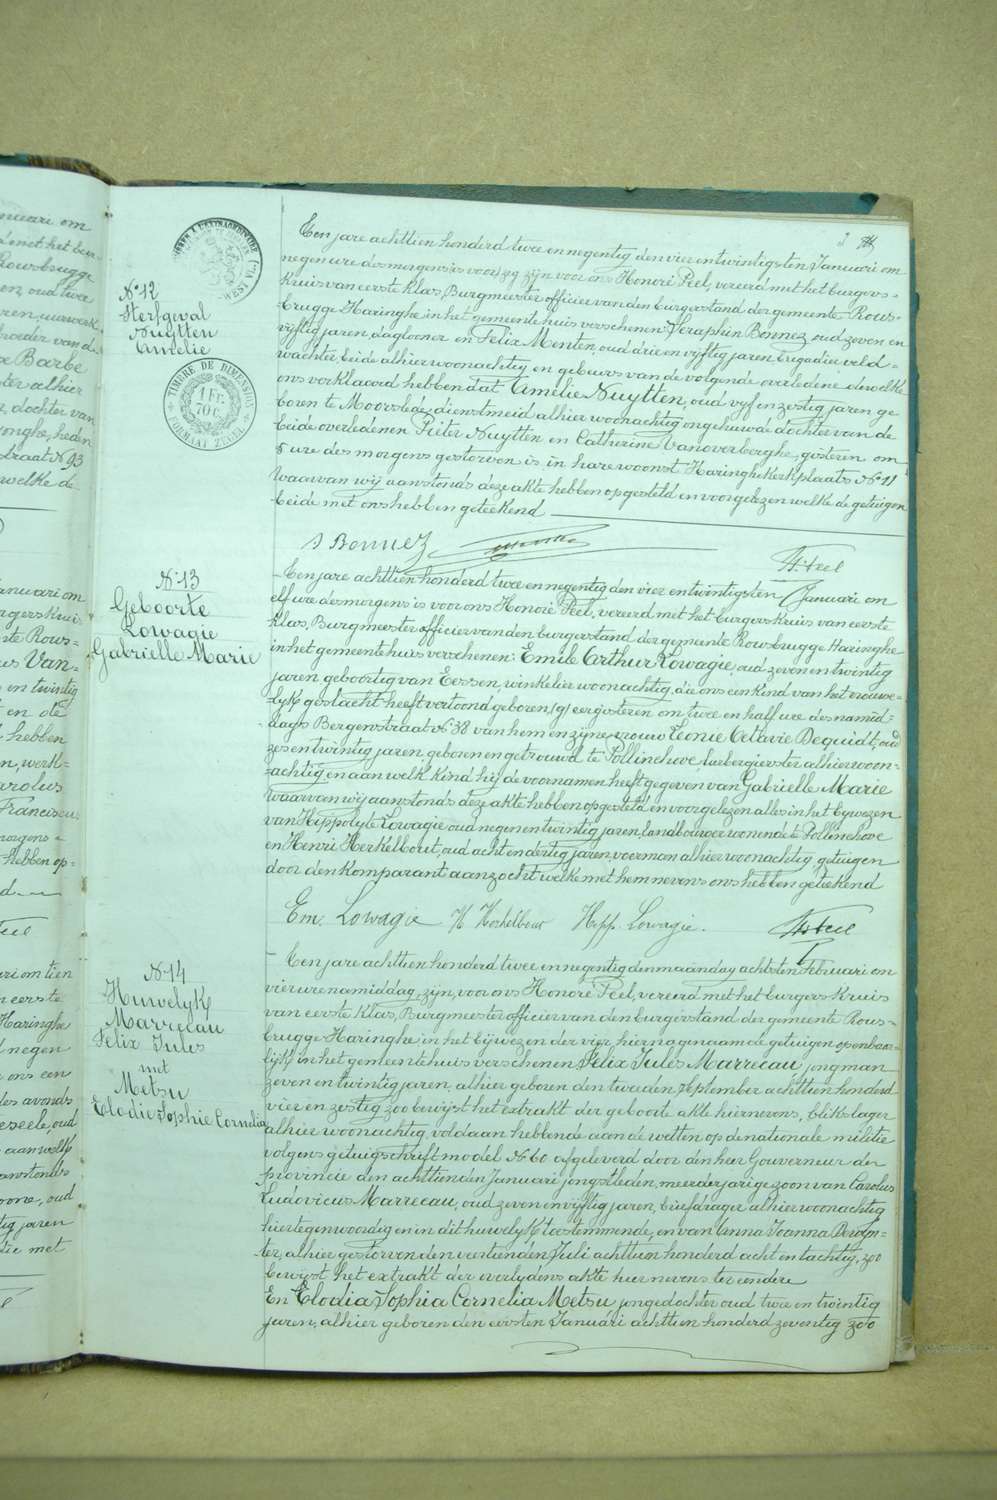 nuari om
Rowsbrugge
en, oud twee
ren, uurwerk
broeder van d
x Barbe
ter alhier
z, dochter van
onghe, heden
straat No 93
welke de
anuari om
rgerskruis
te Rows-
us Van-
en twintig
en de
hebben
n, werk-
arolus
Franciscus
morgens
hebben op-
d
eel
ri om tien
eerste
Haringhe
negen
ons een
des avonds
eseele, oud
aan welk
anstonds
oone, oud
tig jaren
die met
No 12
Sterfgeval
Nuytten
Amelie
TIMBRE DE DIMENSION
1 Fr.
70 C.
FORMAAT ZEGEL
Ten jare achttien honderd twee en negentig den vier en twintigsten Januari om
negen ure des morgens is voor zeg zijn voor ons Honoré Peel, vereerd met het burgers-
Kruis van eerste klas, Burgmeester officier van den burgerstand der gemeente Rous-
brugge Haringhe in het gemeentehuis verschenen Seraphin Bonnez oud zeven en
vijftig jaren, daglooner en Felix Menten, oud drie en vijftig jaren brigadier veld-
wachter beide alhier woonachtig en gebuers van de volgende overledene dewelke
ons verklaard hebben dat Amelie Nuytten, oud vijf en zestig jaren ge
boren te Moorslede, dienstmeid alhier woonachtig ongehuwde dochter van de
beide overledenen Pieter Nuytten en Catherine Vanoverberghe, gisteren om
5 ure des morgens gestorven is in hare woonst Haringhe Kerkplaats No 11
Waarvan wij aanstonds deze akte hebben opgesteld en voorgelezen welke de getuigen
beide met ons hebben geteekend
S Bonnez
H. Peel
No 13
Geboorte
Lowagie
Gabrielle Marie
Ten jare achttien honderd twee en negentig den vier en twintigsten Januari om
elf ure des morgens is voor ons Honoré Peel, vereerd met het burgerskruis van eerste
Klas, Burgmeester officier van den burgerstand der gemeente Rousbrugge Haringhe
in het gemeentehuis verschenen: Emile Arthur Lowagie, oud zeven en twintig
jaren geboortig van Eessen, winkelier woonachtig, die ons een kind van het vrouwe-
lyk geslacht heeft vertoond geboren, (g) eergisteren om twee en half ure des namid-
dags Bergenstraat No 38 van hem en zijne vrouw Leonie Octavie Dequidt, oud
zes en twintig jaren, geboren en getrouwd te Pollinchove, herbergierster alhier woon-
achtig, en aan welk kind hij de voornamen heeft gegeven van Gabrielle Marie
Waarvan wij aanstonds deze akte hebben opgesteld en voorgelezen alles in het bywezen
van Hippolyte Lowagie oud negen en twintig jaren, landbouwer wonende te Pollinchove
en Henri Herkelbout, oud acht en dertig jaren, voerman alhier woonachtig, getuigen
door den Komparant aanzocht welke met hem nevens ons hebben geteekend
Em. Lowagie H Herkelbout Hipp. Lowagie.
H. Peel
No 14
Huwelyk
Marrecau
Felix Jules
met
Metsu
Elodie Sophie Cornelia
Ten jare achttien honderd twee en negentig den maandag achtsten Februari om
vier ure namiddag, zijn, voor ons Honoré Peel, vereerd met het burgers Kruis
van eerste Klas, Burgmeester officier van den burgerstand der gemeente Rous-
brugge Haringhe in het bijwezen der vier hierna genaamde getuigen openbaar-
lijk in het gemeentehuis verschenen Felix Jules Marrecau jongman
zeven en twintig jaren, alhier geboren den tweeden September achttien honderd
vier en zestig zoo bewijst het extrakt der geboorte akte hiernevens, blikslager
alhier woonachtig, voldaan hebbende aan de wetten op de nationale militie
volgens getuigschrift model No 60 afgeleverd door den heer Gouverneur der
provincie den achttienden Januari jongstleden, meerderjarige zoon van Carolus
Ludovicus Marrecau, oud zeven en vijftig jaren, briefdrager alhier woonachtig
hier tegenwoordig en in dit huwelyk toestemmende, en van Anna Joanna
ter, alhier gestorven den veertienden Juli achttien honderd acht en tachtig, zoo
bewijst het extrakt der overlydens akte hier nevens ter eendere
En Elodia Sophia Cornelia Metsu jongedochter oud twee en twintig
jaren, alhier geboren den eersten Januari achttien honderd zeventig zoo